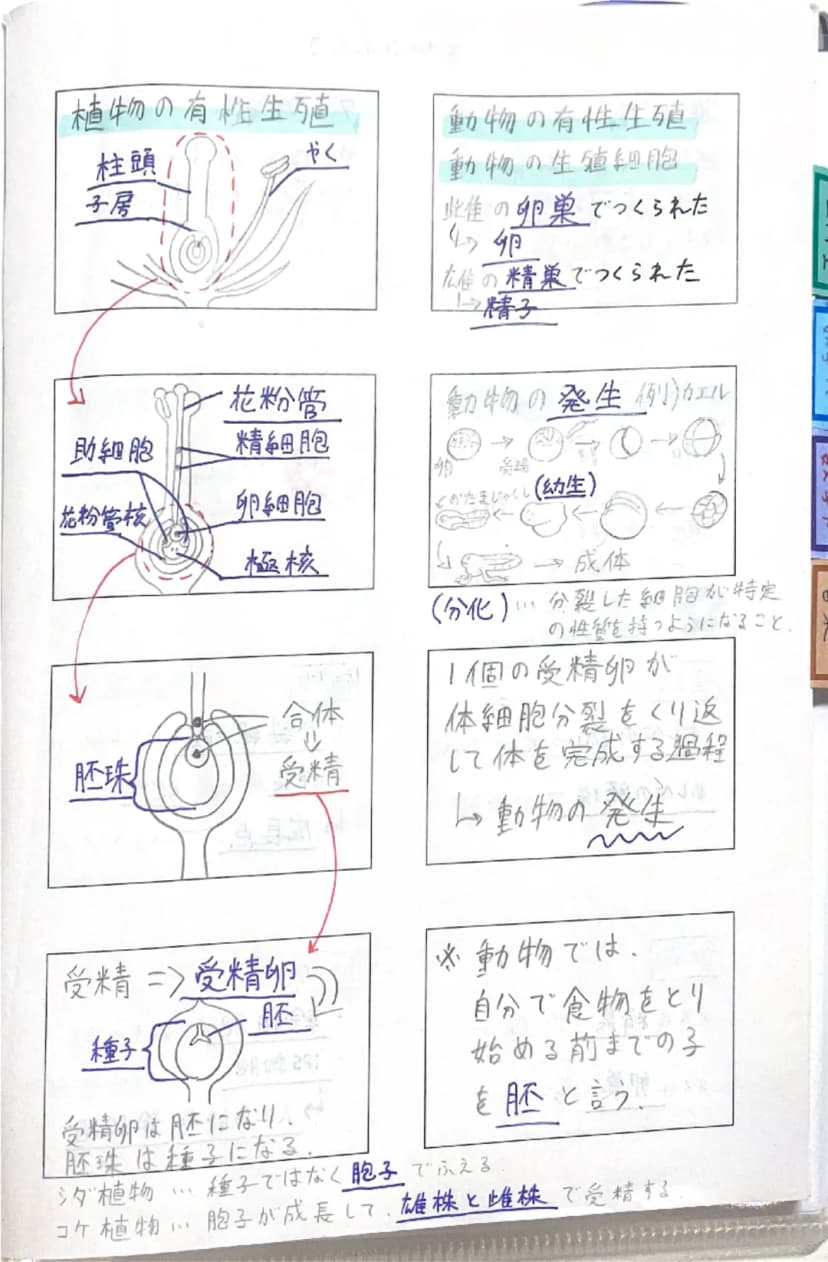 植物の有性生殖
柱頭
やく
子房
花粉管
精細胞
助細胞
卵細胞
花粉管核
極核
合体
↓
胚珠
受精
受精 => 受精卵
胚
種子
受精卵は胚になり、
胚珠は種子になる。
シダ植物 … 種子ではなく胞子でふえる
コケ植物 … 胞子が成長して、雄株と雌株で受精する
動物の有性生殖
動物の生殖細胞
雌の卵巣でつくられた
↳ 卵
雄の精巣でつくられた
↳ 精子
動物の発生 例)カエル
卵
(幼生)
おたまじゃくし
→ 成体
(分化)… 分裂した細胞が特定
の性質を持つようになること。
1個の受精卵が
体細胞分裂をくり返
して体を完成する過程
↳ 動物の発生
※ 動物では、
自分で食物をとり
始める前までの子
を胚と言う。